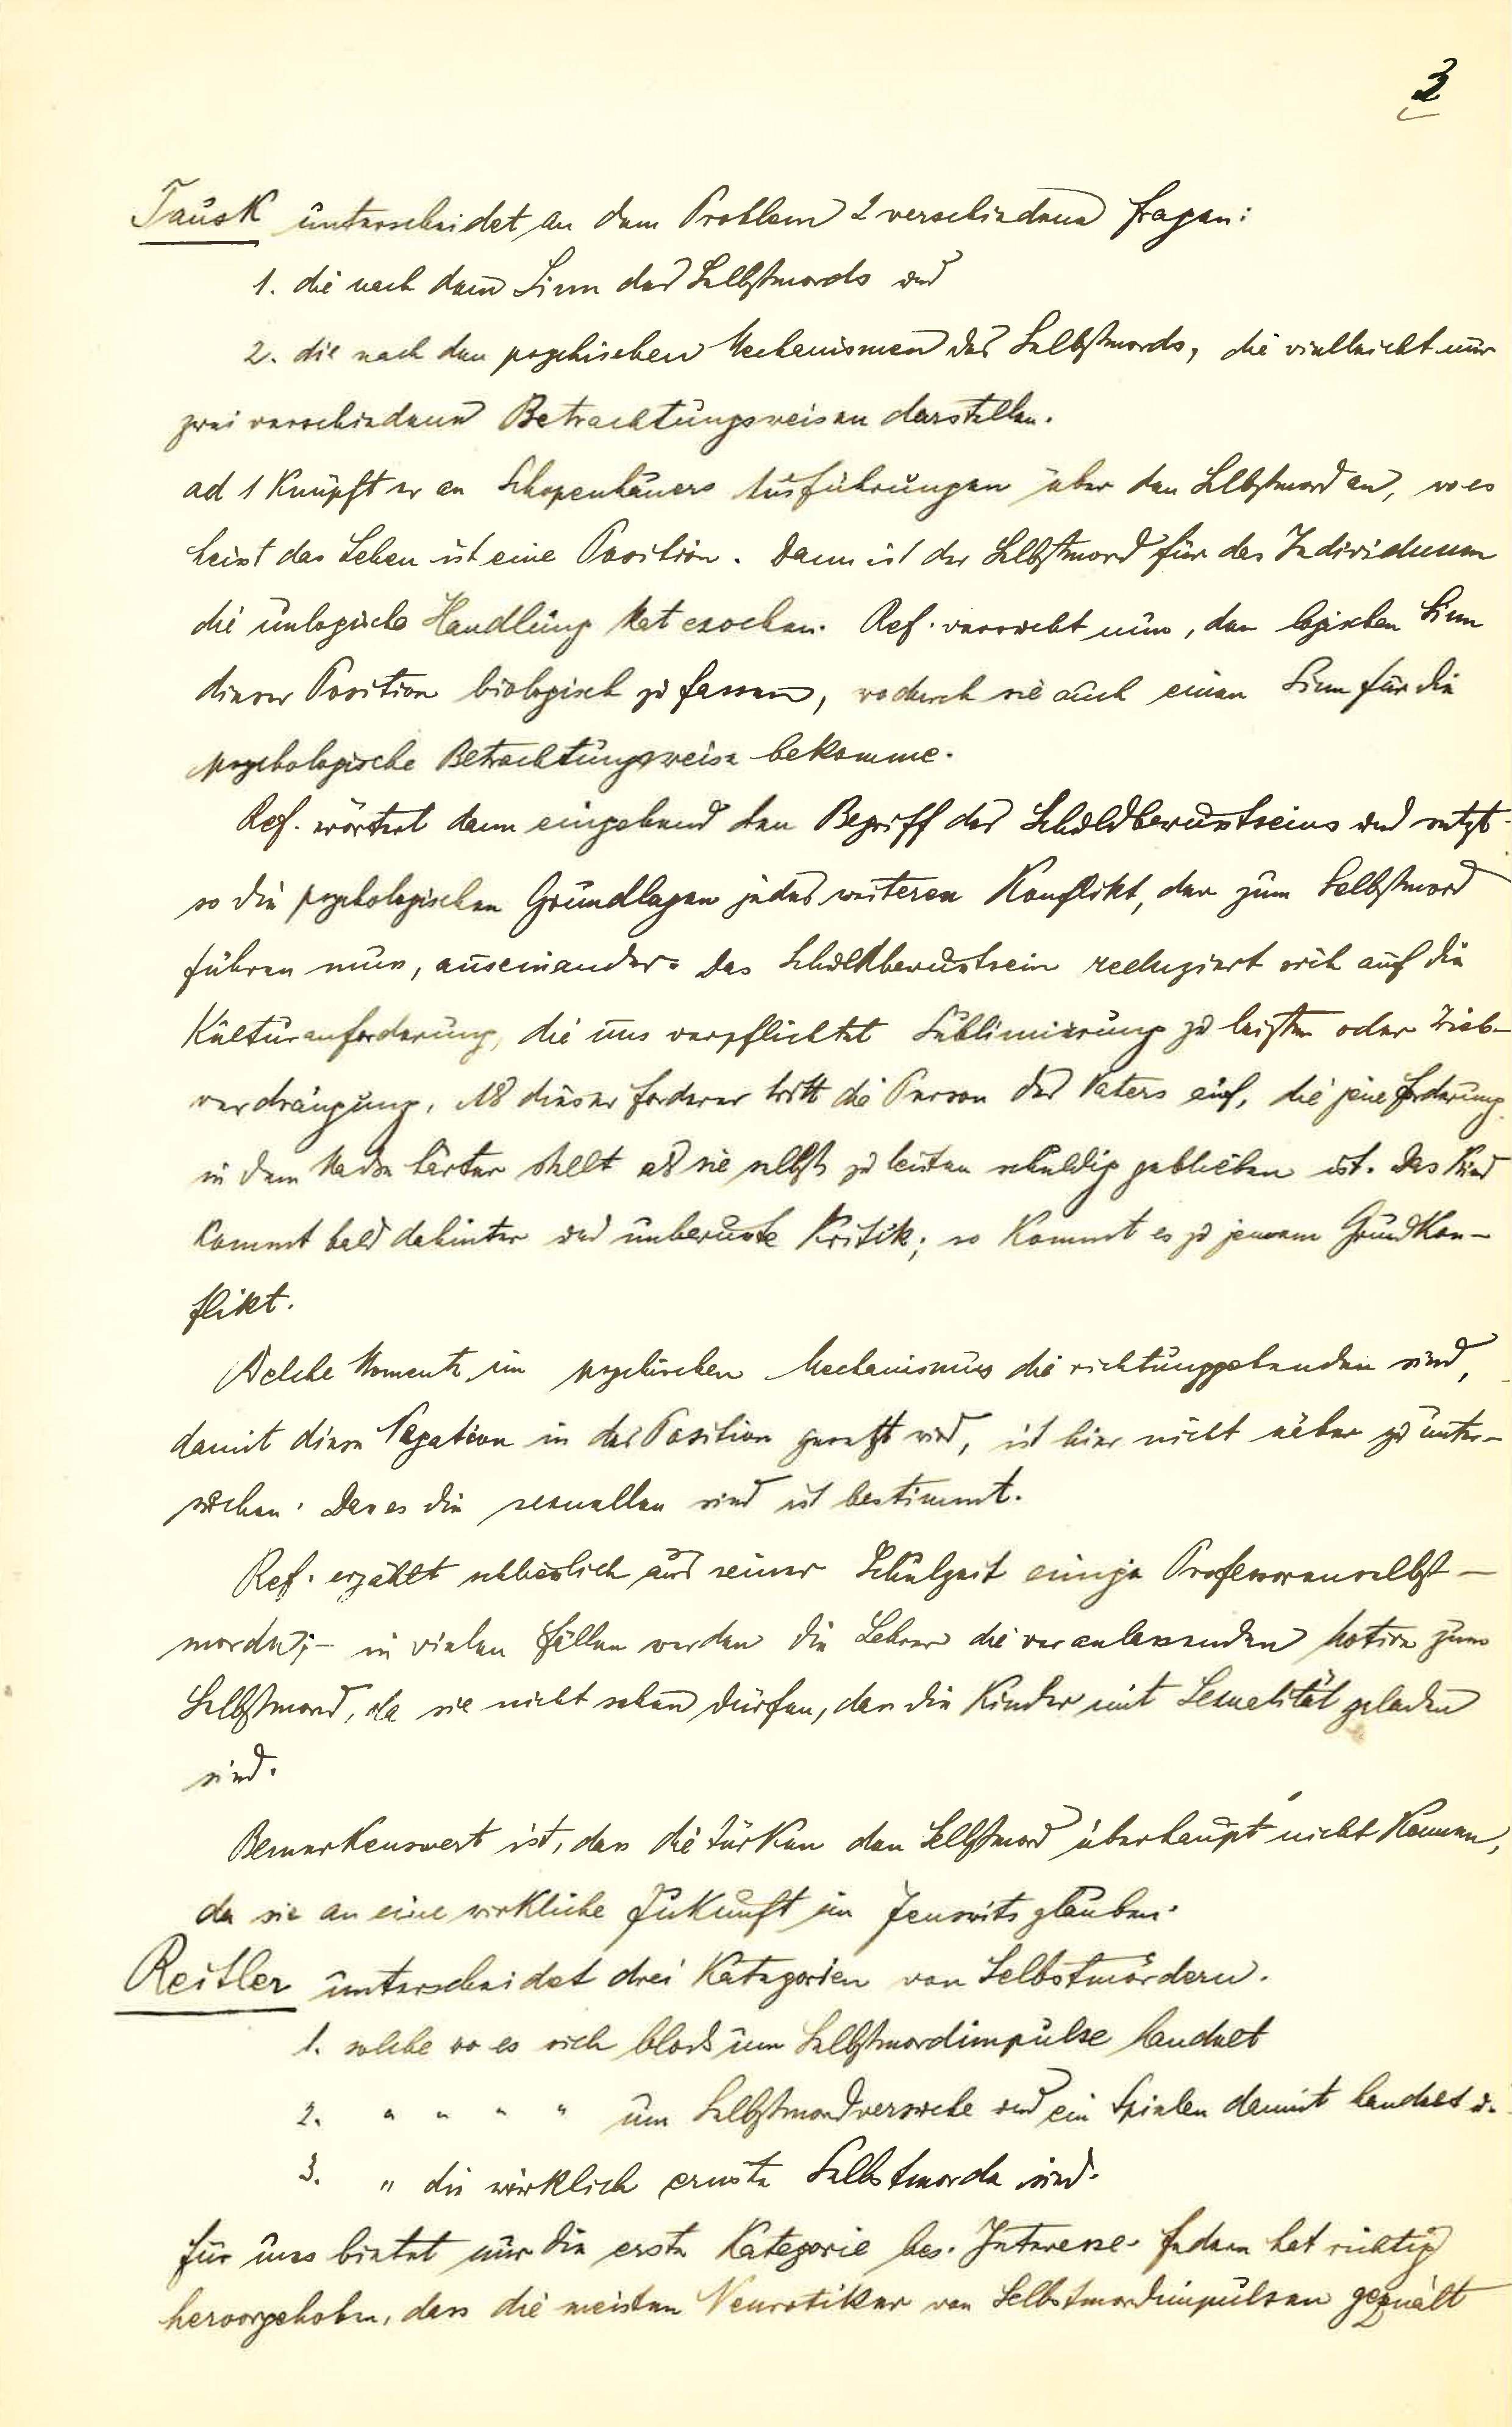 3
Tausk unterscheidet an dem Problem 2 verschiedene Fragen:
1. die nach dem Sinn des Selbstmords und
2. die nach den psychischen Mechanismen des Selbstmords, die vielleicht nur
zwei verschiedene Betrachtungsweisen darstellen.
ad 1 knüpft er an Schopenhauers Ausführungen über den Selbstmord an, wo es
heisst das Leben ist eine Position. Dann ist der Selbstmord für das Individuum
die unlogische Handlung kat exochen. Ref. versucht nun, den logischen Sinn
dieser Position biologisch zu fassen, wodurch sie auch einen Sinn für die
psychologische Betrachtungsweise bekomme.
Ref. erörtert dann eingehend den Begriff des Schuldbewusstseins und setzt
so die psychologischen Grundlagen jedes weiteren Konflikt, der zum Selbstmord
führen muss, auseinander. Das Schuldbewusstsein reduziert sich auf die
Kulturanforderung, die uns verpflichtet Sublimierung zu leisten oder Trieb-
verdrängung. Als dieser Forderer tritt die Person des Vaters auf, die jene Forderung
in dem Maße härter stellt als sie selbst zu leisten schuldig geblieben ist. Das Kind
kommt bald dahinter und unbewusste Kritik; so kommt es zu jenem Grundkon-
flikt.
Welche Momente im psychischen Mechanismus die richtunggebenden sind,
damit diese Negation in das Position gesetzt wird, ist hier nicht näher zu unter-
suchen. Dass es die sexuellen sind ist bestimmt.
Ref. erzählt schliesslich aus seiner Schulzeit einige Professorenselbst-
morde; - in vielen Fällen werden die Lehrer die veranlassenden Motive zum
Selbstmord, da sie nicht sehen dürfen, dass die Kinder mit Sexualität geladen
sind.
Bemerkenswert ist, dass die Türken den Selbstmord überhaupt nicht kennen,
da sie an eine wirkliche Zukunft im Jenseits glauben.
Reitler unterscheidet drei Kategorien von Selbstmördern.
1. solche wo es sich bloss um Selbstmordimpulse handelt
2. " " " " um Selbstmordversuche und ein Spielen damit handelt u.
3. " die wirklich ernste Selbstmorde sind.
Für uns bietet nur die erste Kategorie bes. Interesse. Federn hat richtig
hervorgehoben, dass die meisten Neurotiker von Selbstmordimpulsen gequält